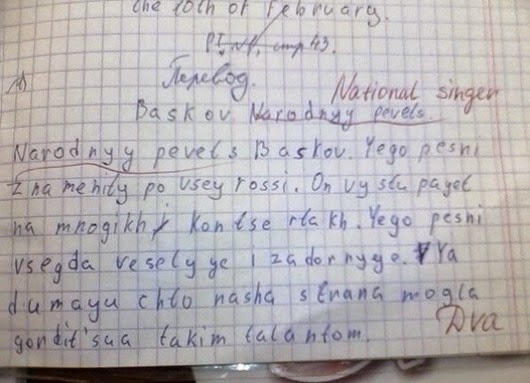 the 10th of February.
стр 43.
Перевод.
National singer
Baskov Narodnyy pevets.
Narodnyy pevets Baskov. Yego pesni
znamenity po vsey rossi. On vystupayet
na mnogikh kontsertakh. Yego pesni
vsegda veselyye i zadornyye. Ya
dumayu chto nasha strana mogla
gordit'sua takim talantom.
Dva